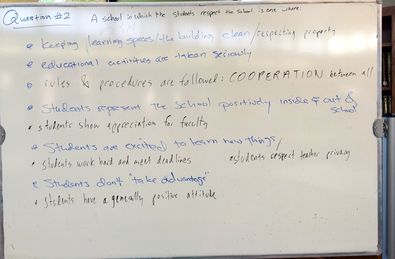 Question #2 A school in which the students respect the school is one where:
• Keeping learning spaces/the building clean/respecting property
• educational activities are taken seriously
• rules & procedures are followed: COOPERATION between all
• Students represent the School positively inside & out of School
• students show appreciation for faculty
• Students are excited to learn new things/
• Students work hard and meet deadlines • students respect teacher privacy
• Students don't "take advantage"
• Students have a generally positive attitude